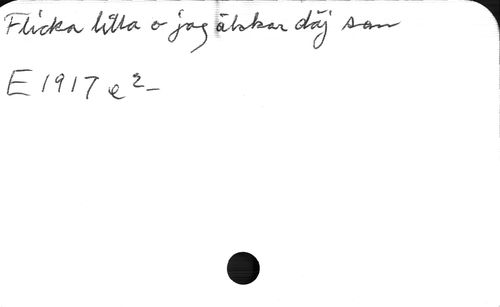 Flicka lilla o jag älskar däj som
E 1917 e 2-